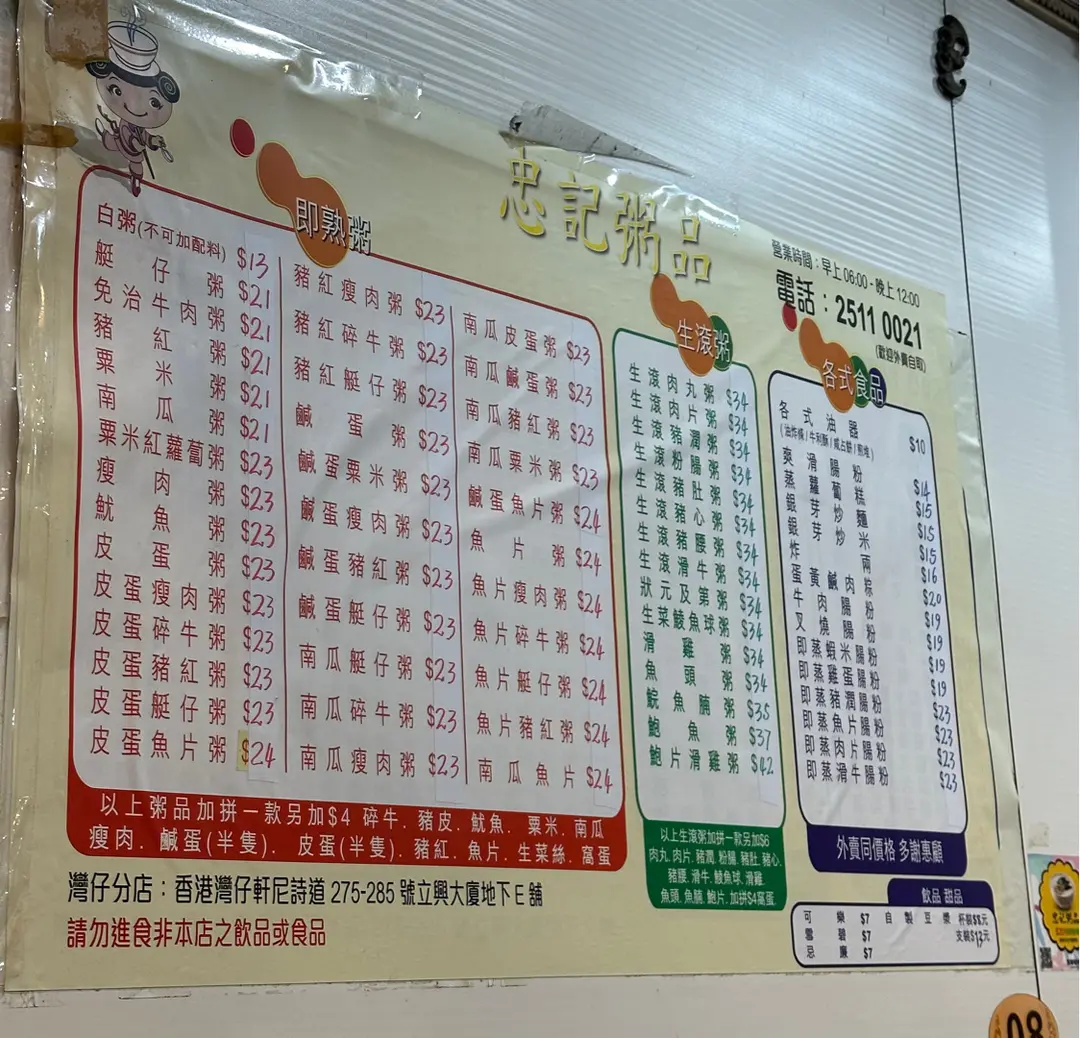 忠記粥品
營業時間：早上 06:00 - 晚上 12:00
電話：2511 0021
(歡迎外賣自取)
即熟粥
白粥(不可加配料) $13
艇仔粥 $21
免治牛肉粥 $21
豬紅粥 $21
粟米粥 $21
南瓜粥 $21
粟米紅蘿蔔粥 $23
瘦肉粥 $23
魷魚粥 $23
皮蛋粥 $23
皮蛋瘦肉粥 $23
皮蛋碎牛粥 $23
皮蛋豬紅粥 $23
皮蛋艇仔粥 $23
皮蛋魚片粥 $24
豬紅瘦肉粥 $23
豬紅碎牛粥 $23
豬紅艇仔粥 $23
鹹蛋粥 $23
鹹蛋粟米粥 $23
鹹蛋瘦肉粥 $23
鹹蛋豬紅粥 $23
鹹蛋艇仔粥 $23
南瓜艇仔粥 $23
南瓜碎牛粥 $23
南瓜瘦肉粥 $23
南瓜皮蛋粥 $23
南瓜鹹蛋粥 $23
南瓜豬紅粥 $23
南瓜粟米粥 $23
鹹蛋魚片粥 $24
魚片粥 $24
魚片瘦肉粥 $24
魚片碎牛粥 $24
魚片艇仔粥 $24
魚片豬紅粥 $24
南瓜魚片 $24
以上粥品加拼一款另加$4 碎牛. 豬皮. 魷魚. 粟米. 南瓜
瘦肉. 鹹蛋(半隻). 皮蛋(半隻). 豬紅. 魚片. 生菜絲. 窩蛋
生滾粥
生滾肉丸粥 $34
生滾肉片粥 $34
生滾豬潤粥 $34
生滾粉腸粥 $34
生滾豬肚粥 $34
生滾豬心粥 $34
生滾豬腰粥 $34
生滾滑牛粥 $34
狀元及第粥 $34
生菜鯪魚球粥 $34
滑雞粥 $34
魚頭粥 $34
鯇魚腩粥 $35
鮑魚粥 $37
鮑片滑雞粥 $42
以上生滾粥加拼一款另加$6
肉丸. 肉片. 豬潤. 粉腸. 豬肚. 豬心.
豬腰. 滑牛. 鯪魚球. 滑雞.
魚頭. 魚腩. 鮑片. 加拼$4窩蛋
各式食品
各式油器 $10
(油炸燴/牛利酥/咸占餅/煎堆)
爽滑腸粉 $14
蒸蘿蔔糕 $15
銀芽炒麵 $15
銀芽炒米 $15
炸兩 $16
蛋黃鹹肉粽 $20
牛肉腸粉 $19
叉燒腸粉 $19
即蒸蝦米腸粉 $19
即蒸雞蛋腸粉 $19
即蒸豬潤腸粉 $23
即蒸魚片腸粉 $23
即蒸肉片腸粉 $23
即蒸滑牛腸粉 $23
外賣同價格 多謝惠顧
飲品 甜品
可樂 $7 自製豆漿 杯裝$8元
雪碧 $7 支裝$12元
忌廉 $7
灣仔分店：香港灣仔軒尼詩道 275-285 號立興大廈地下 E 舖
請勿進食非本店之飲品或食品
08